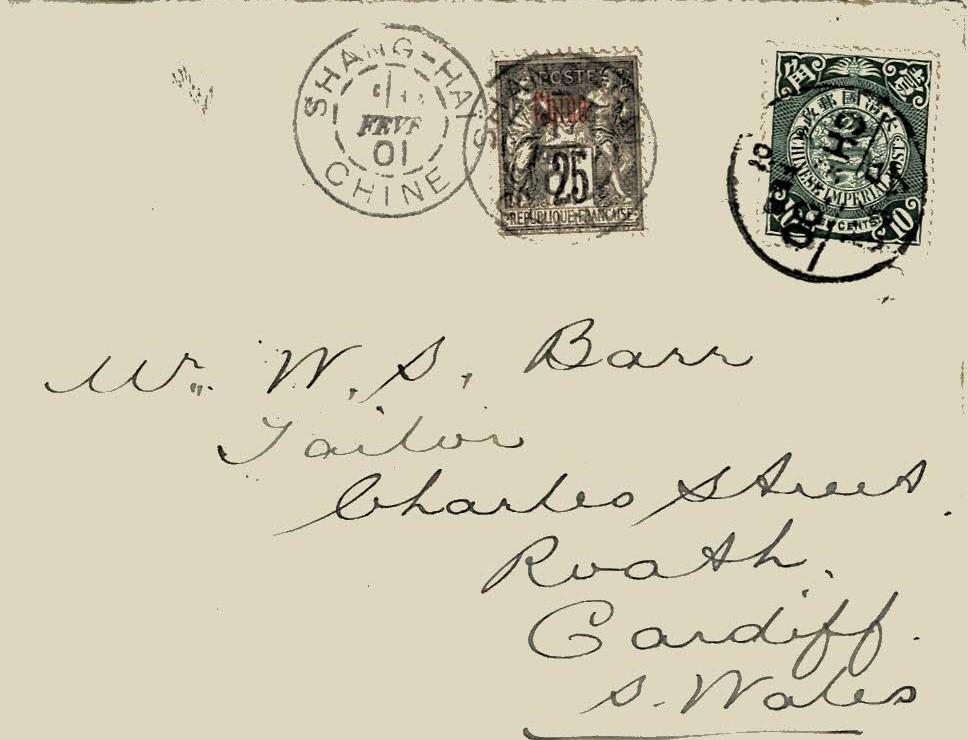 SHANG-HAI
FEVR
01
CHINE
POSTE
Chine
25
REPUBLIQUE FRANÇAISE
大清國郵政
CHINESE IMPERIAL POST
10 CENTS 10
Mr. W. S. Barr
Tailor
Charles Street.
Roath.
Cardiff.
S. Wales